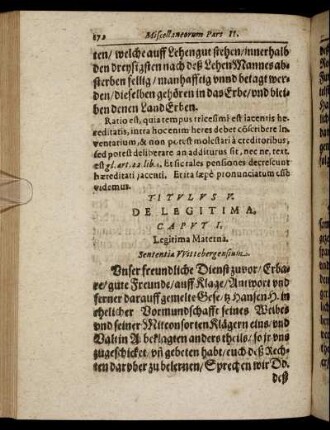 872 Miscellaneorum Part II.
ten/ welche auff Lehengut stehen/innerhalb
den dreysigsten nach deß Lehen Mannes ab-
sterben fellig/ manhafftig vnnd betagt wer-
den/ dieselben gehören in das Erbe/ vnd blei-
ben denen Land Erben.
Ratio est, quia tempus tricesimi est jacentis hę-
reditatis, intra hocenim heres debet cōscribere In-
ventarium, & non potest molestari à creditoribus,
sed potest deliberare an additurus sit, nec ne, text.
est gl. art. 22. lib. 1. Et sic tales pensiones decrescunt
hæreditati jacenti. Et ita sæpè pronunciatum esse
videmus.
TITVLVS V.
DE LEGITIMA,
CAPVT I.
Legitima Materna.
Sententia VVittebergensium.
Vnser freundliche Dienst zuvor/ Erba-
re/ gute Freunde/ auff Klage/ Antwort vnd
ferner darauff gemelte Gese/ tz Hansen H. in
ehelicher Vormundschafft seines Weibes
vnd seiner Mitconsorten Klägern eins/ vnd
Valtin A. beklagten anders theils/ so jr vns
zugeschicket/ vn̄ gebeten habt/ euch deß Rech-
ten darvber zu belernen/ Sprechen wir Do-
deß